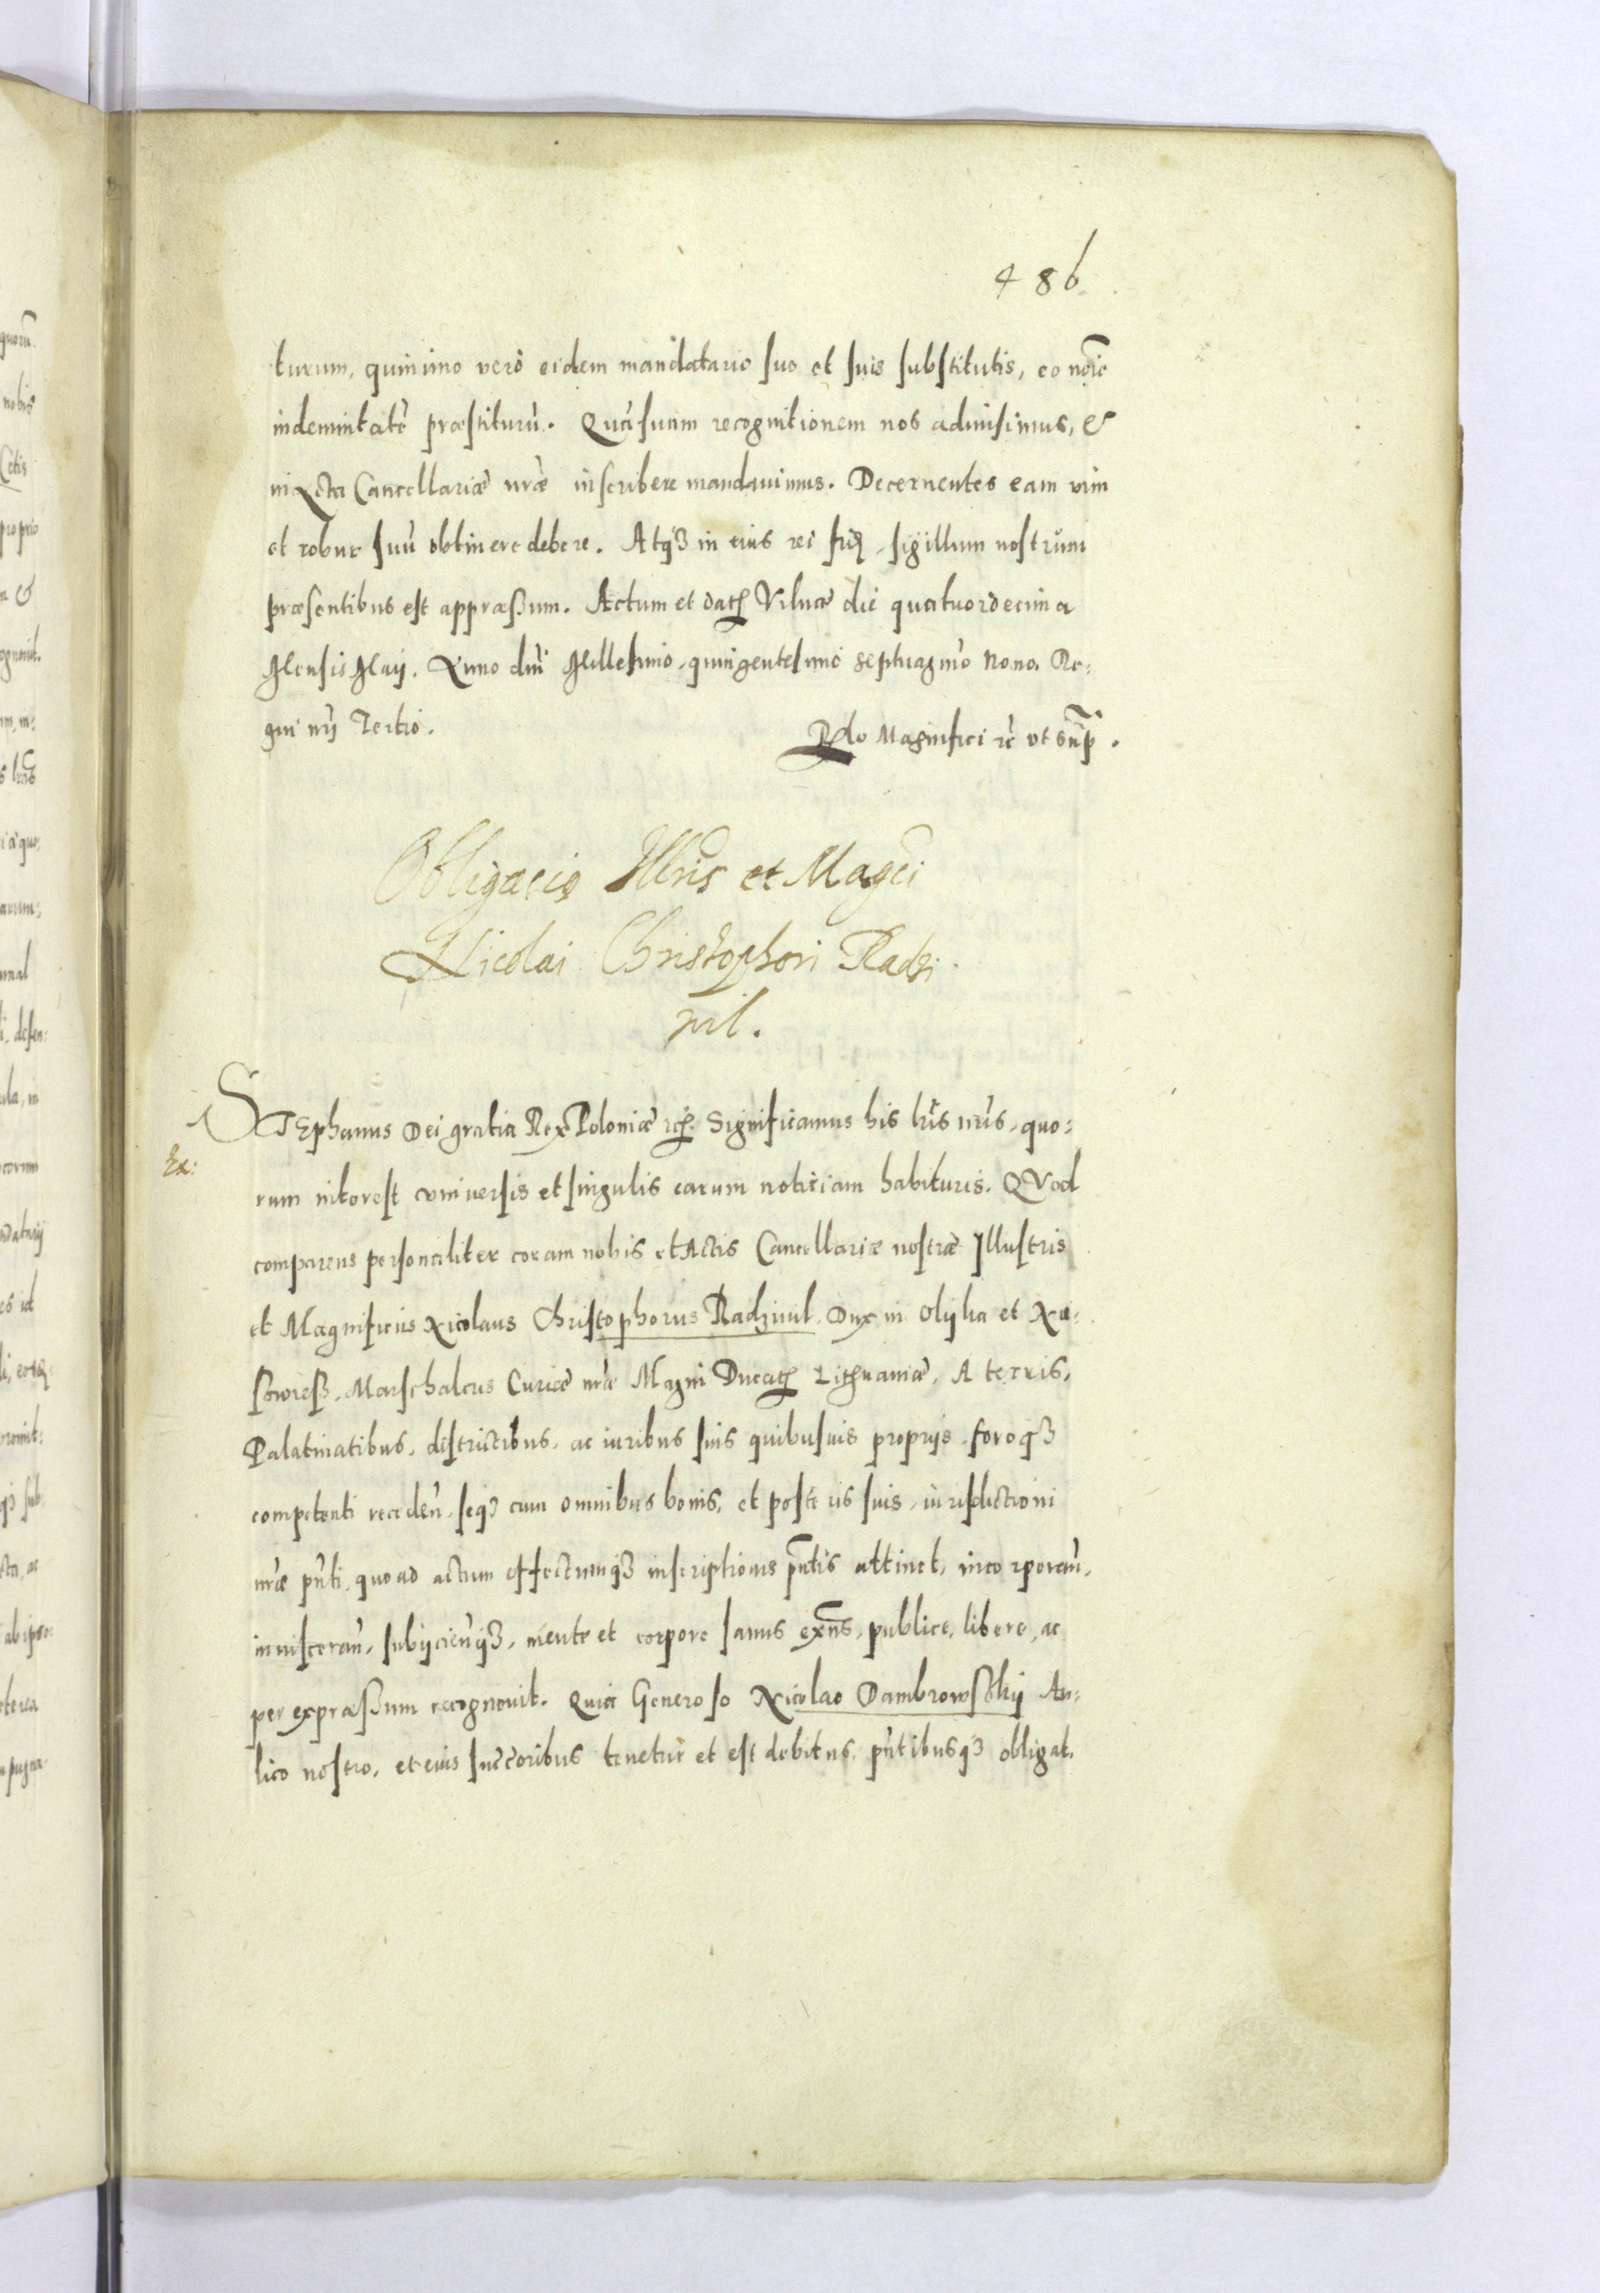 486
turum, quinimo verò eidem mandatario suo et suis substitutis, eo nōīe
indemnitatē præstiturū. Quā suam recognitionem nos admisimus, &
in Acta Cancellariæ nr̄æ inscribere mandauimus. Decernentes eam vim
et robur suū obtinere debere. Atqꝫ in eius rei fidē, sigillum nostrum
præsentibus est appræßum. Actum et datū Vilnæ die quatuordecima
Mensis Maij. Anno dn̄i Millesimo, quingentesimo septuagmō Nono. Re:
gni nr̄i Tertio.
Rl̄o Magnifici rc̄ vt supˉ.
Obligatio Illr̄is et Magci
Nicolai Christophori Radzi
vil.
Ex:
STEphanus Dei gratia Rex Poloniæ rc̄. Significamus his lr̄is nr̄is, quo:
rum interest vniuersis et singulis earum notitiam habituris. QVod
comparens personaliter coram nobis et Actis Cancellariæ nostræ Illustris
et Magnificus Nicolaus Christophorus Radziuil, Dux in Olijka et Ni:
ſwieß, Marschalcus Curiæ nr̄æ Magni Ducatū Lithuaniæ, A terris,
Palatinatibus, districtibus, ac iuribus suis quibusuis proprijs, foroqꝫ
competenti recedeń, seqꝫ cum omnibus bonis, et posteris suis, iurisdictioni
nr̄æ pn̄ti, quoad actum effectumqꝫ inscriptionis pn̄tis attinet, incorporań,
inuisceran̄, subijcien̄qꝫ, mente et corpore sanus exn̄s, publice, libere, ac
per expræßum recognouit. Quia Generoso Nicolao Dambrowskij Au:
lico nostro, et eius succ̄oribus tenetur et est debitus, pn̄tibusqꝫ obligat.